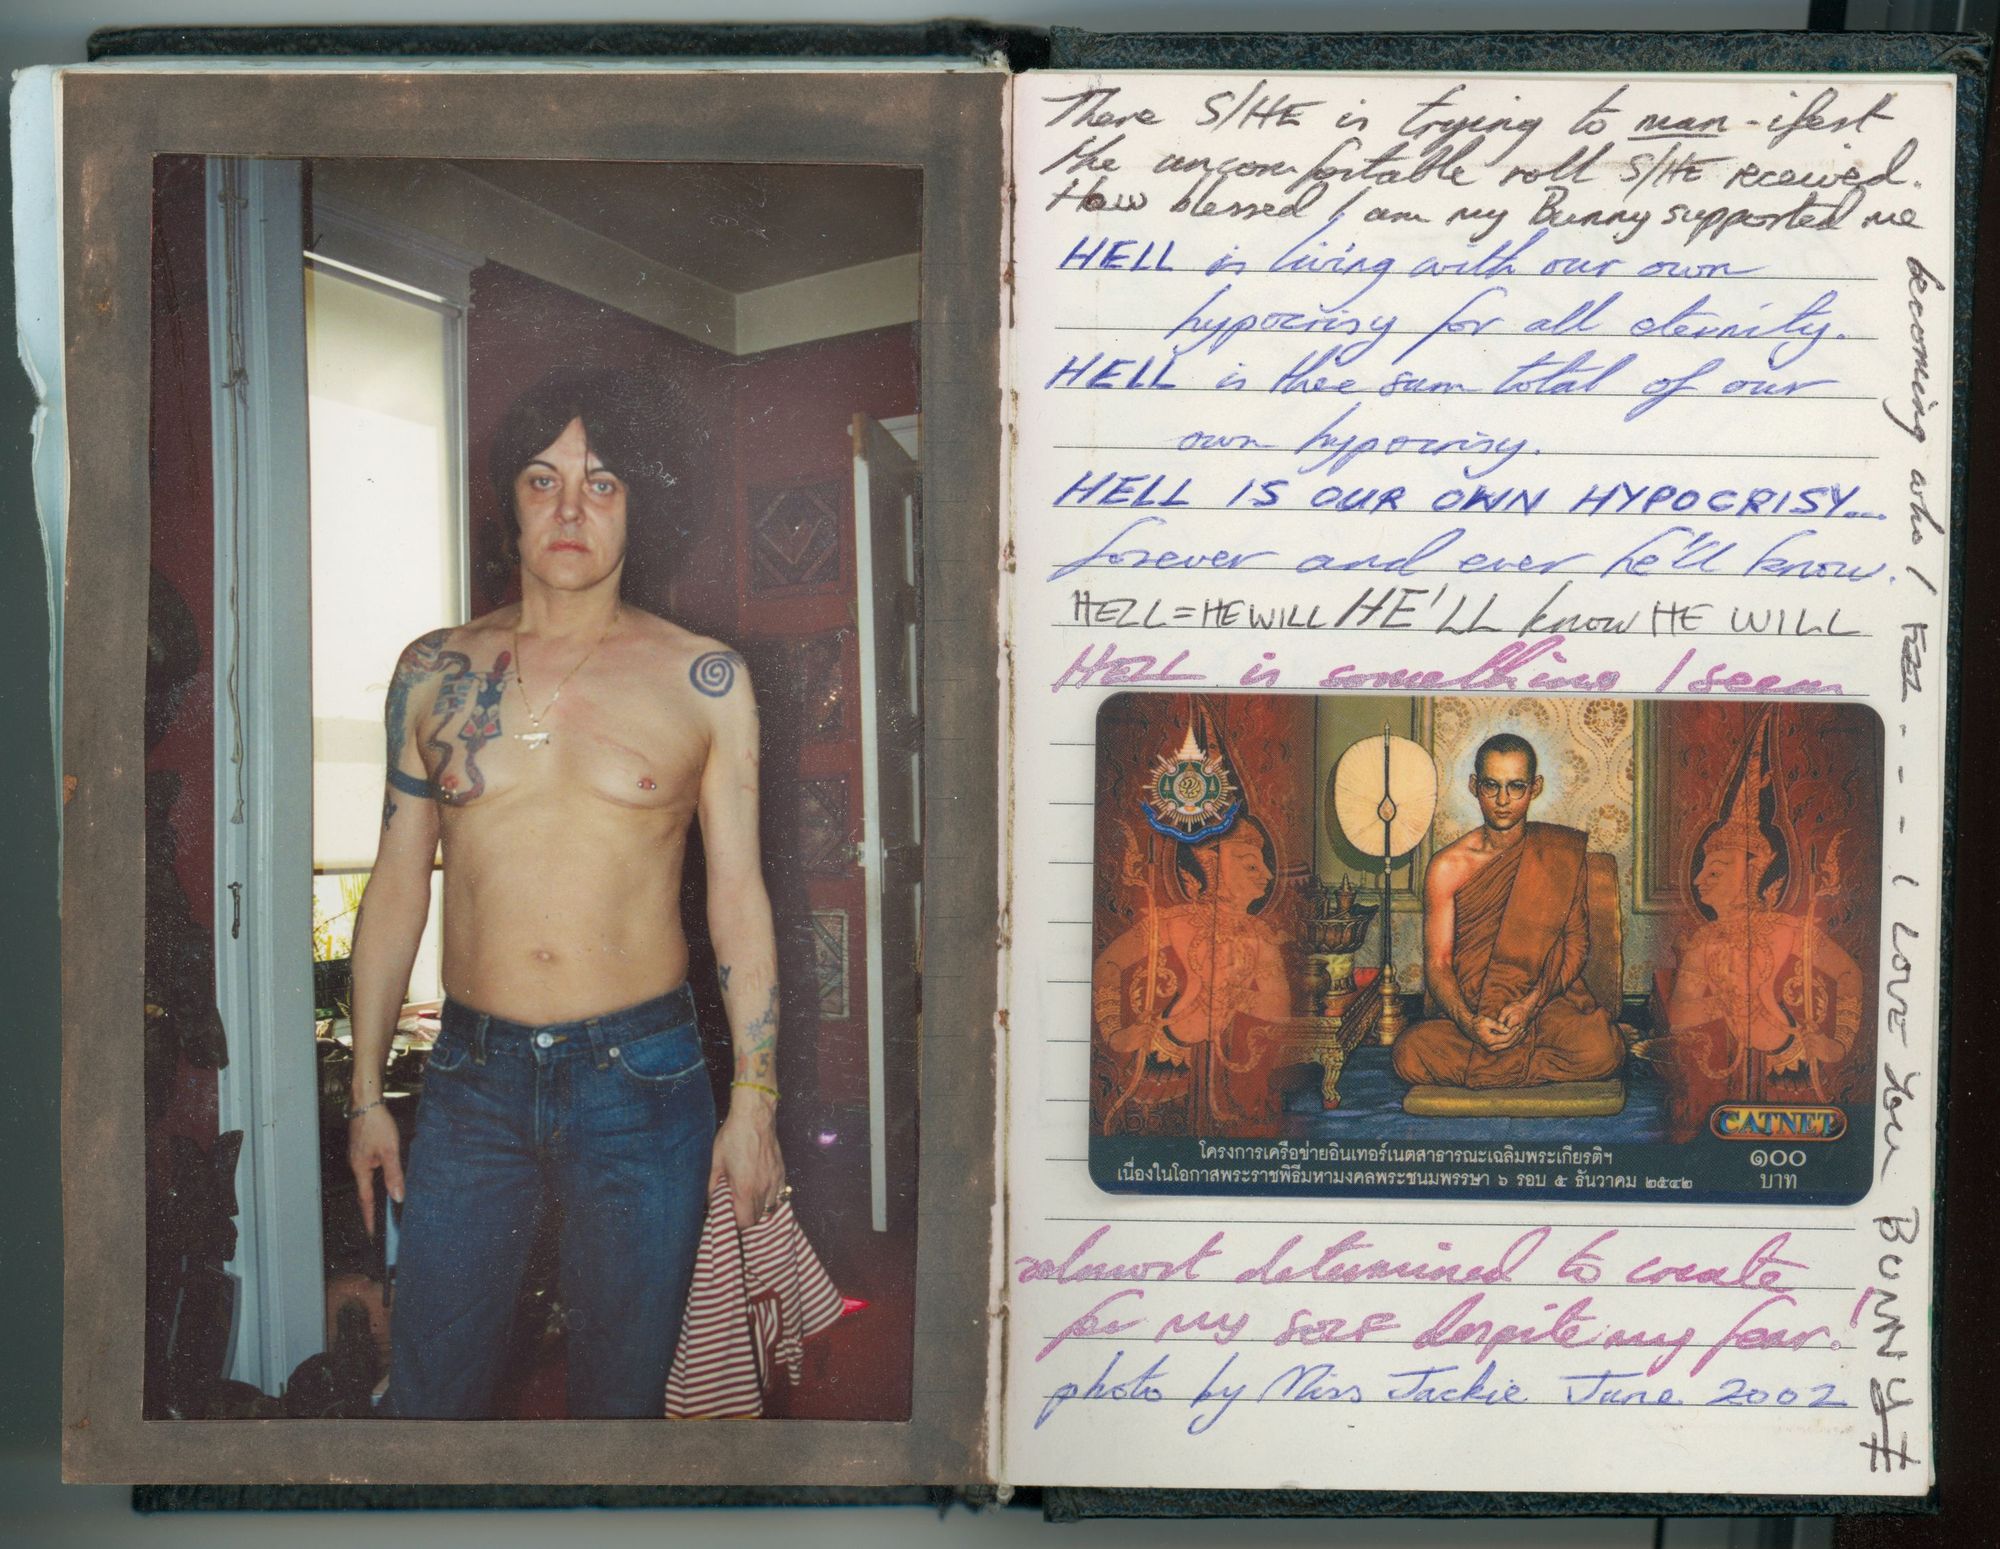 There S/HE is trying to man-ifest
the uncomfortable roll S/HE received.
How blessed I am my Bunny supported me
becoming who I FEEL - - - I LOVE YOU BUNNY
HELL is living with our own
hypocrisy for all eternity.
HELL is thee sum total of our
own hypocrisy.
HELL IS OUR OWN HYPOCRISY...
forever and ever he'll know.
HELL=HE WILL HE'LL know HE WILL
HELL is something I seem
CATNET
โครงการเครือข่ายอินเทอร์เนตสาธารณะเฉลิมพระเกียรติฯ
เนื่องในโอกาสพระราชพิธีมหามงคลพระชนมพรรษา ๖ รอบ ๕ ธันวาคม ๒๕๔๒
๑๐๐
บาท
almost determined to create
for my SELF despite my fear!
photo by Miss Jackie June 2002